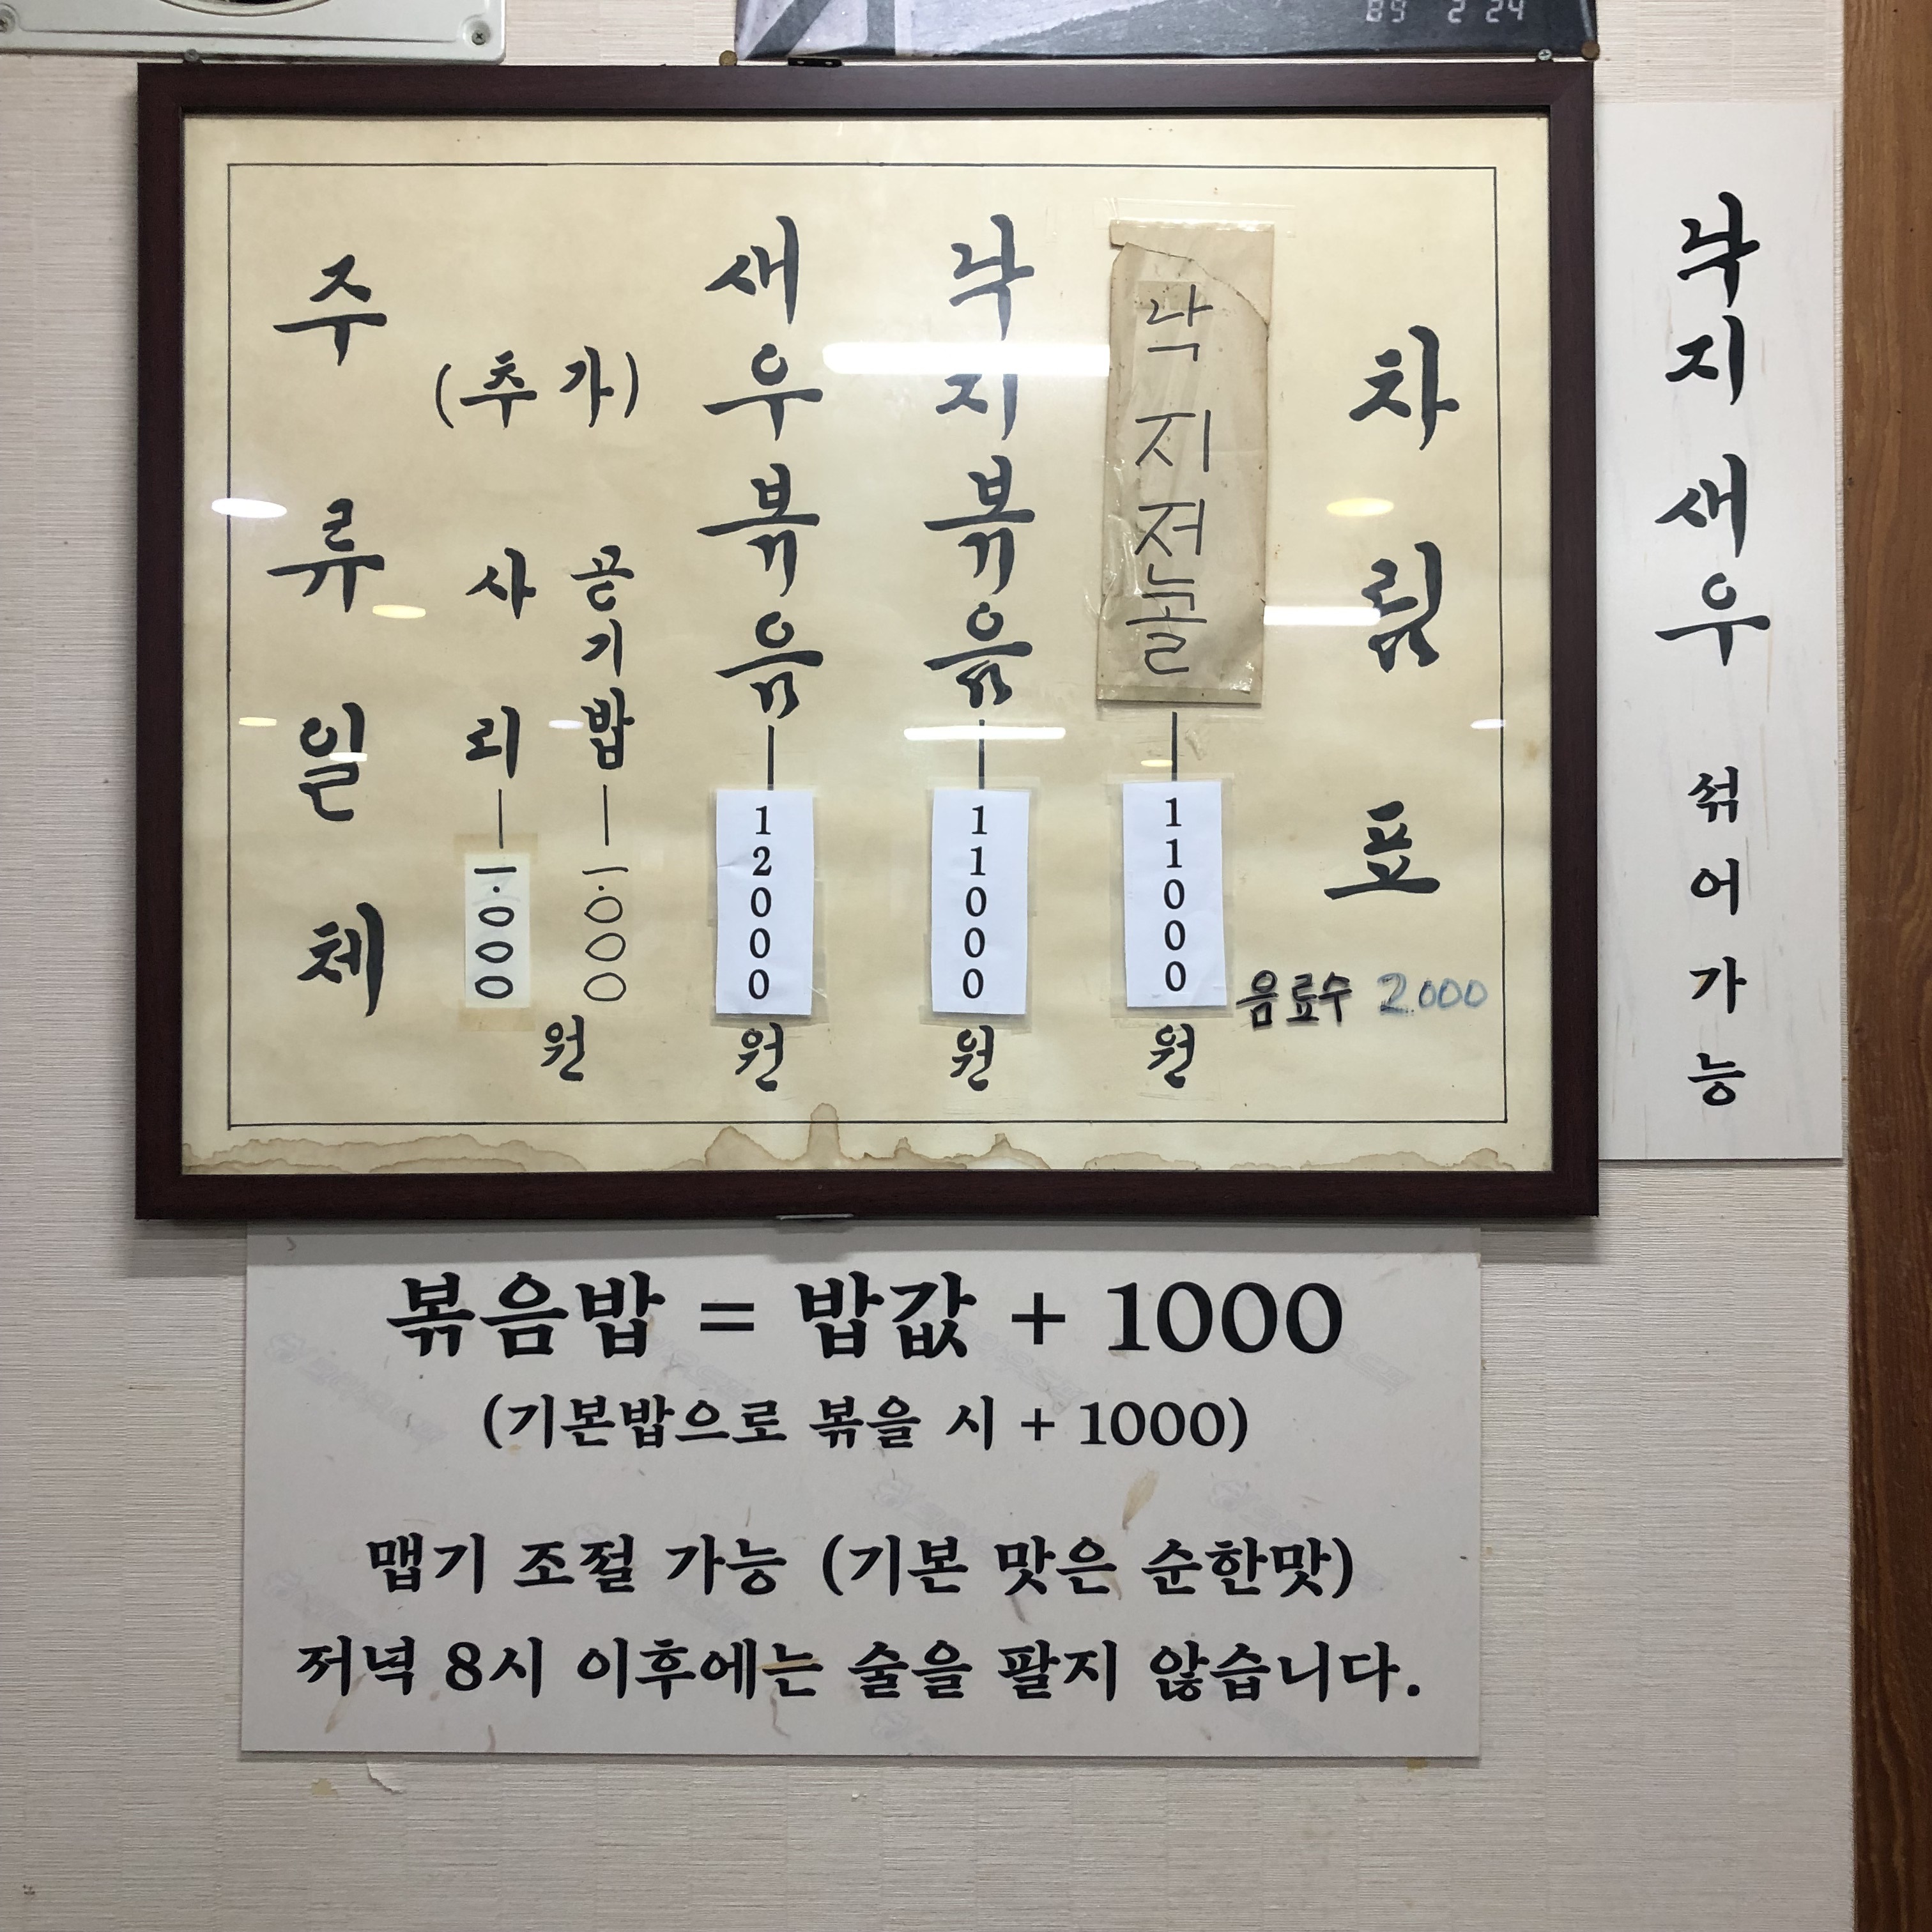 89 2 24
차림표
음료수 2.000
낙지전골
11000
원
낙지볶음
11000
원
새우볶음
12000
원
(추가)
공기밥 一.000
사리 一.000
원
주류일체
낙지새우 섞어가능
볶음밥 = 밥값 + 1000
(기본밥으로 볶을 시 + 1000)
맵기 조절 가능 (기본 맛은 순한맛)
저녁 8시 이후에는 술을 팔지 않습니다.